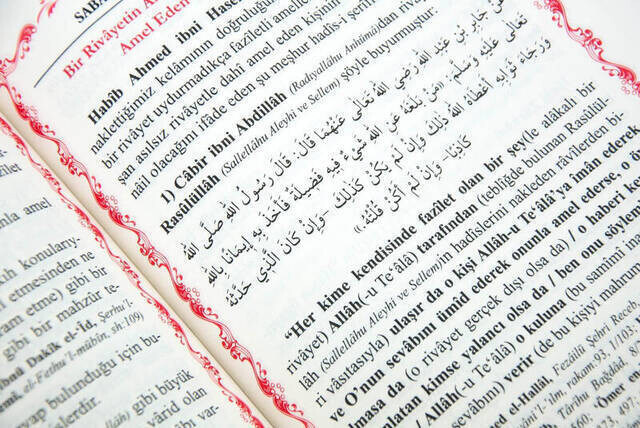 SABA
Bir Rivâyetin A
Amel Eden
Habîb Ahmed ibni Hase
naklettiğimiz kelâmının doğruluğu
bir rivâyet uydurmadıkça fazîletli amelle
şan asılsız rivâyetle dahi amel eden kişinin
nâil olacağını ifade eden şu meşhur hadîs-i şerîf
1) Câbir ibni Abdillâh (Radıyallâhu Anhümâ)dan riv
Rasûlüllâh (Sallellâhu Aleyhi ve Sellem) şöyle buyurmuştur:
عَنْ جَابِرِ بْنِ عَبْدِ اللهِ رَضِيَ اللهُ تَعَالَى عَنْهُمَا قَالَ: قَالَ رَسُولُ اللهِ صَلَّى اللهُ
تَعَالَى عَلَيْهِ وَسَلَّمَ: «مَنْ بَلَغَهُ عَنِ اللهِ شَيْءٌ فِيهِ فَضِيلَةٌ فَأَخَذَ بِهِ إِيمَانًا بِاللهِ
وَرَجَاءَ ثَوَابِهِ أَعْطَاهُ اللهُ ذَلِكَ وَإِنْ لَمْ يَكُنْ كَذَلِكَ - وَإِنْ كَانَ الَّذِي حَدَّثَهُ
كَاذِبًا - وَإِنْ لَمْ أَكُنْ قُلْتُهُ»
“Her kime kendisinde fazîlet olan bir şey(le alâkalı bir
rivâyet) Allâh(-u Te‘âlâ) tarafından (tebliğde bulunan Rasûlül-
lâh (Sallellâhu Aleyhi ve Sellem)in hadîslerini nakleden râvîlerden bi-
ri vâsıtasıyla) ulaşır da o kişi Allâh-u Te‘âlâ’ya îmân ederek
ve O’nun sevâbını ümîd ederek onunla amel ederse, o
lmasa da (o rivâyet gerçek dışı olsa da) / o haberi ke
nlatan kimse yalancı olsa da / ben onu söyle
/ Allâh(-u Te‘âlâ) o kuluna (bu sanîmi in
sevâbını) verir (de bu kişiyi mahrum
ed el-Halâl, Fezâilü Şehri Recec
'l-ilm, rakam:93, 1/103
Târîhu Bağdâd,
nla amel
h konuları-
etmesinden ne
ram etme) gibi bir
gibi bir mahzûr te-
bnü Dakîk el-‘Îd, Şerhu’l-
el-Fethu’l-mübîn, sh:109)
bulunduğu için bu-
gibi büyük
şlerdir.
yap
vârid olan
ett var-